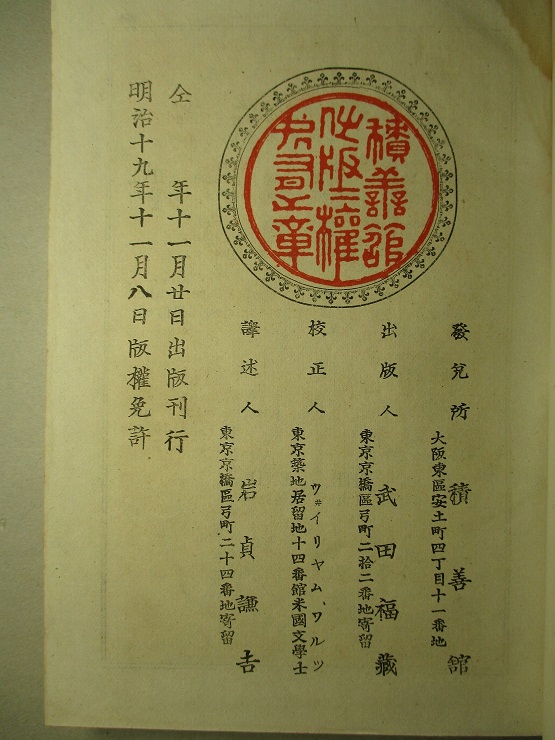 積善舘
出版之權
所有之章
發兌所 積善館
大阪東區安土町四丁目十一番地
出版人 武田福藏
東京京橋區弓町二拾二番地寄留
校正人 ウ井イリヤム、ワルツ
東京築地居留地十四番館米國文學士
譯述人 岩貞謙吉
東京京橋區弓町二十四番地寄留
仝 年十一月廿日出版刊行
明治十九年十一月八日版權免許